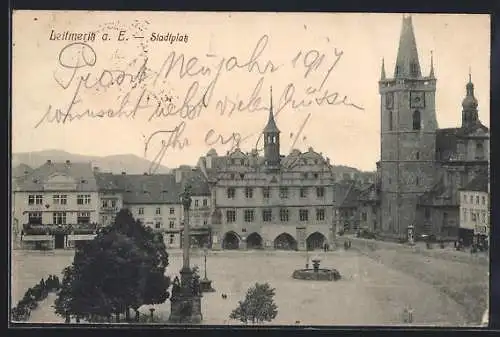 Leitmeritz a. E. — Stadtplatz
Prosit Neujahr 1917
wünscht nebst vielen Grüssen
Ihr